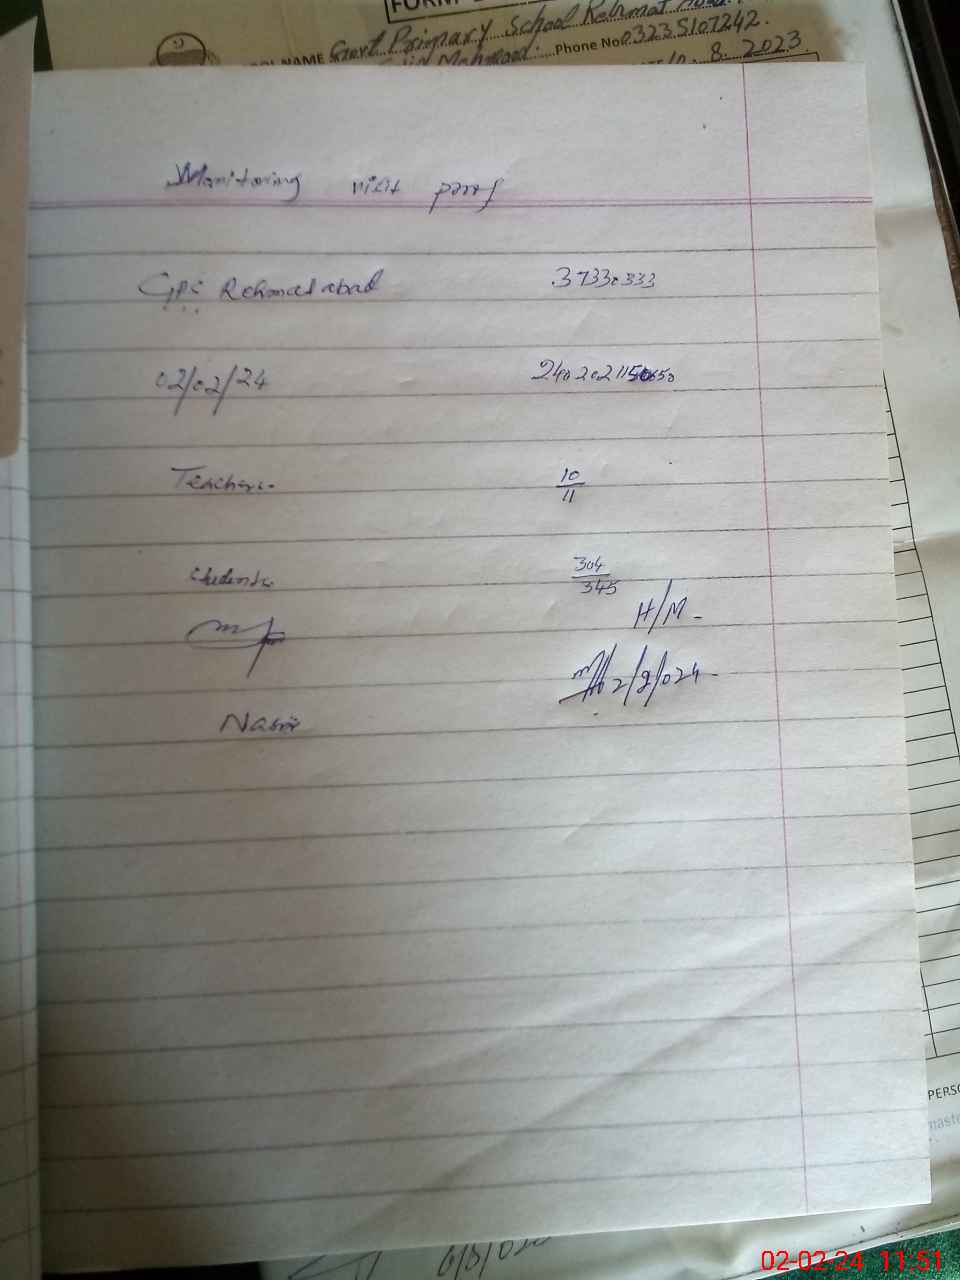 FORM
NAME Govt Primary School Rehmat
Mehmood Phone No 03235107242.
10.8.2023.
Monitoring visit proof
GPS Rehmatabad 37330333
02/02/24
Teachers 10/11
Students 304/345
H/M-
02/2/024-
Nasir
PERSO
maste
02-02-24 11:51